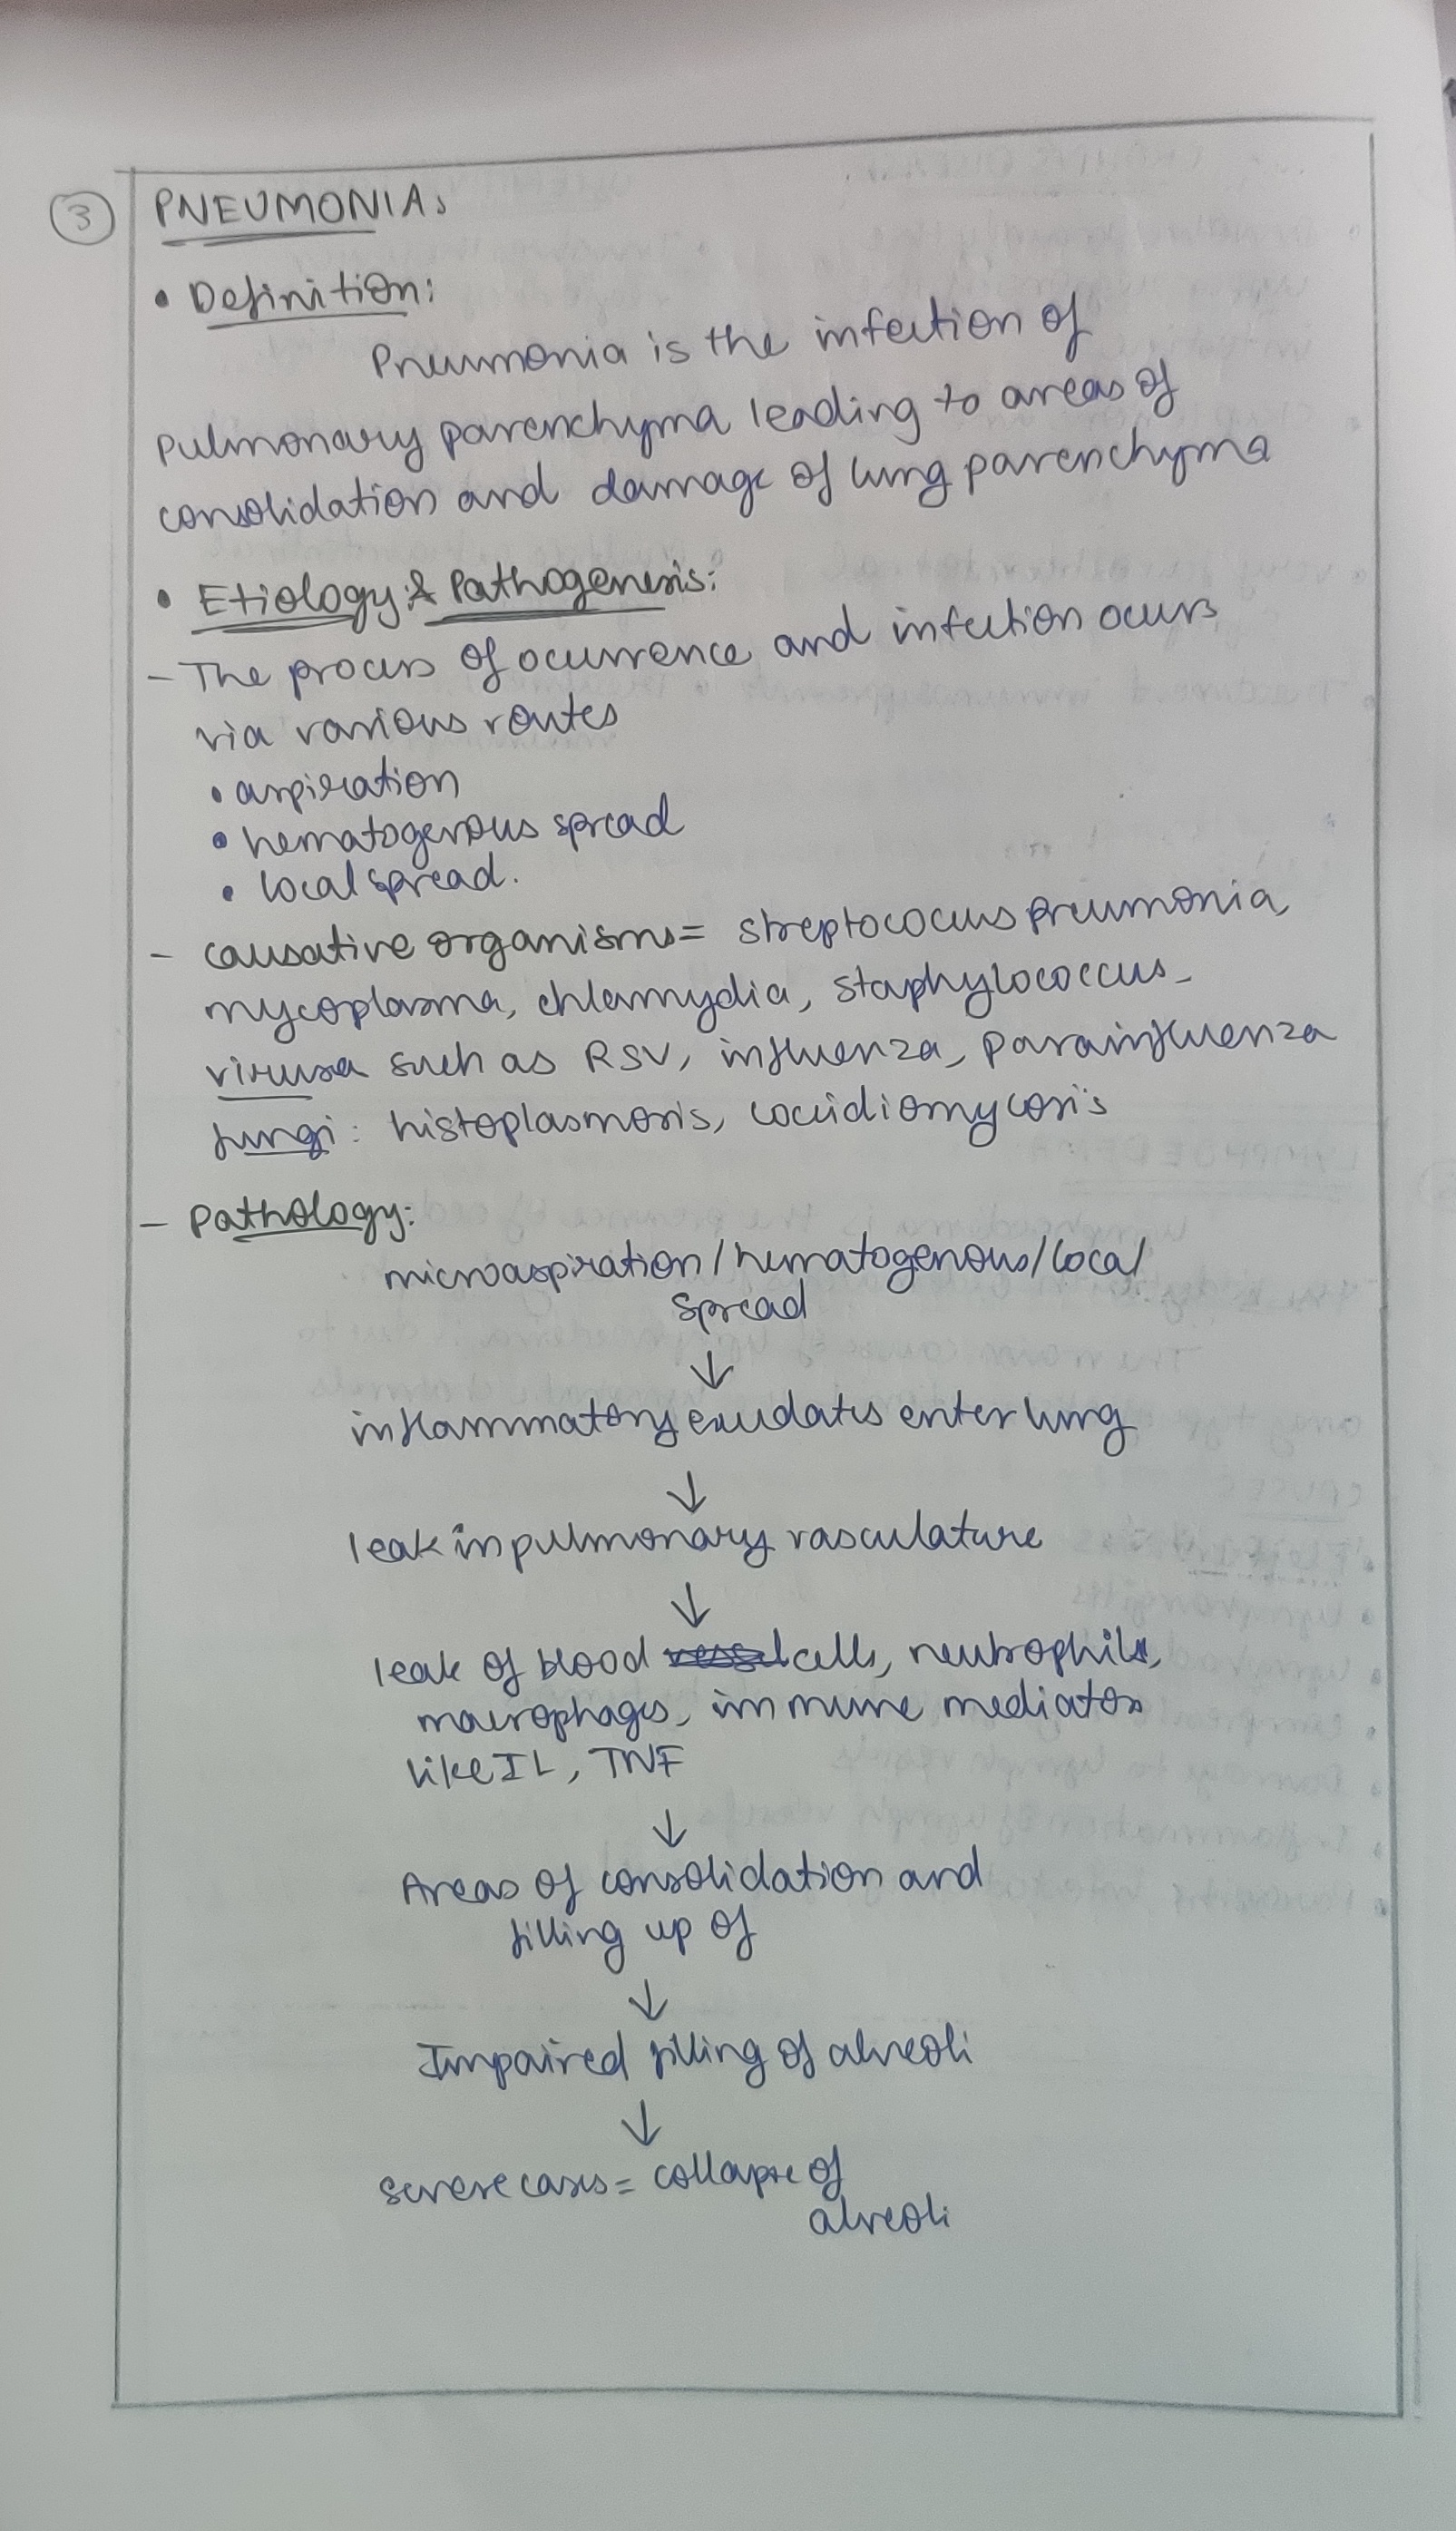 3 PNEUMONIA:
• Definition:
Pneumonia is the infection of
pulmonary parenchyma leading to areas of
consolidation and damage of lung parenchyma
• Etiology & Pathogenesis:
- The process of ocurrence and infection ocurs
via various routes
• aspiration
• hematogenous spread
• local spread.
- causative organisms = streptococus pneumonia,
mycoplasma, chlamydia, staphylococcus
viruses such as RSV, influenza, parainfluenza
fungi: histoplasmosis, coccidiomycosis
- Pathology:
microaspiration / hematogenous / local
spread
↓
inflammatory exudates enter lung
↓
leak in pulmonary vasculature
↓
leak of blood cells, neutrophils,
macrophages, immune mediators
like IL, TNF
↓
Areas of consolidation and
filling up of
↓
Impaired filling of alveoli
↓
severe cases = collapse of
alveoli